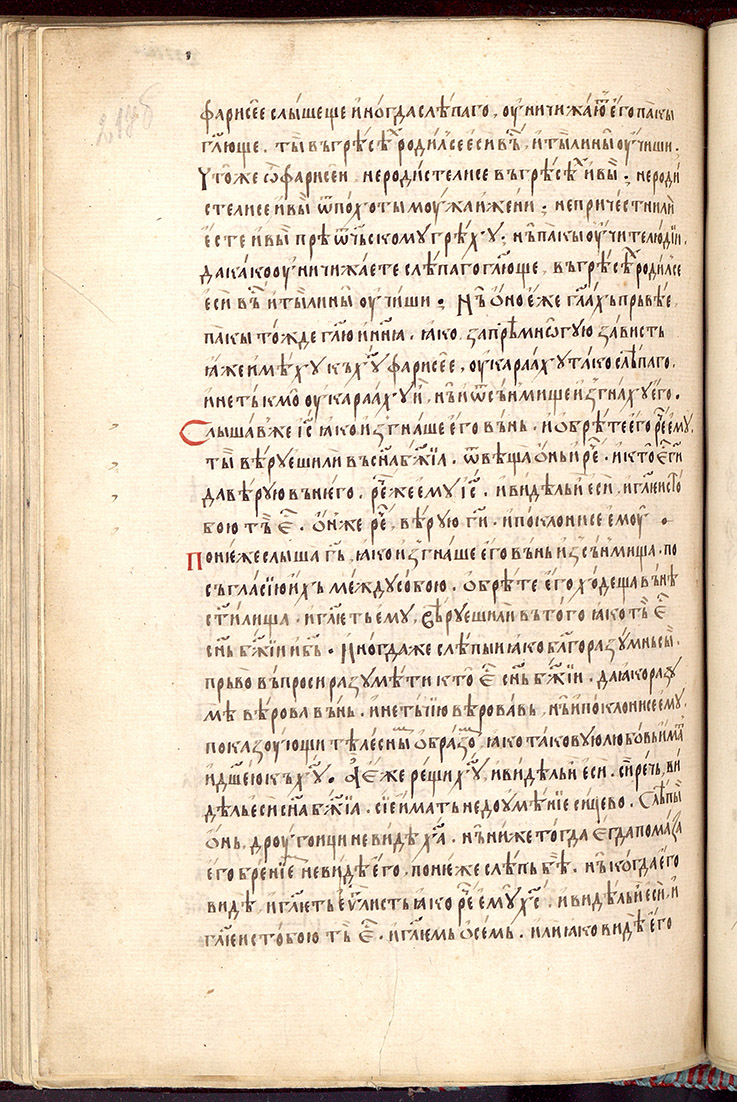 фарисѐе слы́шеще и҆ногда слѣ́паго, оу҆ничижа́ю҆т е҆го па́кы
гл҃юще, ты̀ въ грѣ́сѣⷯ роди́лсе е҆си ве́сь, и҆ ты̀ ли ны̀ оу҆чи́ши.
Что̀ же ѽ фарисѐеи, не роди́сте ли се въ грѣ́сѣⷯ и҆ вы̀; не роди́
сте ли се и҆ вы̀ ѿ по́хоты моу́жа и҆ жени́; не приче́стни ли
е҆сте и҆ вы̀ прѣѡ҆́ч҃ьскому грѣ́хꙋ; нъ̀ па́кы оу҆чи́те лю́дїи,
да ка́ко оу҆ничижа́ете слѣ́паго гл҃юще, въ грѣ́сѣⷯ роди́лсе
е҆си ве́сь и҆ ты̀ ли ны̀ оу҆чи́ши; Нъ̀ ѻ҆́но е҆́же гл҃ахь пръвѣ́е,
па́кы то́жде гл҃ю и҆ ни́нꙗ, ꙗ҆́ко за прѣмнѡ́гꙋю за́висть
ꙗ҆́же и҆мѣ́хꙋ къ хꙋ̀ фарисѐе, оу҆кара́ахꙋ та́ко слѣ́паго,
и҆ не тъ́кмо оу҆кара́ахꙋ и҆̀, нъ̀ и҆ ѿ сьни́мище и҆згна́хꙋ е҆го.
Слы́шав же і҆с҃ ꙗ҆́ко и҆згна́ше е҆го вънь, и҆ ѻ҆брѣ́те е҆го ре́че е҆му,
ты̀ вѣ́руеши ли въ сн҃а бж҃їа. ѿвѣща ѻ҆́нь и҆ ре́че, и҆ кто̀ е҆́сть г҃и
да вѣ́рую вънь него. ре́че же е҆му і҆с҃, и҆ ви́дѣль и҆̀ е҆си, и҆ гл҃еи с то
бою тъ̀ е҆́сть. ѻ҆́н же ре́че, вѣ́рую г҃и. и҆ поклони́се е҆моу̀.
Поне́же слы́ша г҃ь, ꙗ҆́ко и҆згна́ше е҆го вънь и҆з сьни́мища, по
съгла́сїю и҆́хь между собо́ю. ѻ҆брѣ́те е҆го хо́деща вънѣ̀
ст҃и́лища, и҆ гл҃еть е҆му, вѣ́руеши ли въ того̀ ꙗ҆́ко тъ̀ е҆́сть
сн҃ь бж҃їи и҆ б҃ь. И҆ногда же слѣ́пыи ꙗ҆́ко благоразу́мнь сы̀,
пра́во въпроси разумѣ́ти кто̀ е҆́сть сн҃ь бж҃їи. да ꙗ҆́ко разу
мѣ̀ вѣ́рова вънь. и҆ не тъчїю вѣ́ровавь, нъ̀ и҆ поклони́се е҆му,
показоу́ющи тѣле́сныⷨ ѻ҆́бразоⷨ, ꙗ҆́ко такову́ю любо́вь и҆ма́
и҆ дш҃е́ю къ хꙋ̀. А҆ е҆́же рещи хꙋ̀, и҆ ви́дѣль и҆̀ е҆си, си́речь, ви́
дѣль е҆си сн҃а бж҃їа. сїе и҆мать недоумѣ́нїе си́цево. Слѣ́пыи
ѻ҆́нь, дроуго́ици не ви́дѣ х҃а. нъ̀ ниже тогда̀ е҆гда̀ пома́за
е҆го бре́нїемь не ви́дѣ е҆го, поне́же слѣ́пь бѣ̀. нъ̀ когда̀ е҆го
видѣ, и҆ гл҃еть е҆ѵⷢ҇листь ꙗ҆́ко ре́че е҆мꙋ̀ хс҃, и҆ ви́дѣль и҆̀ е҆си, и҆
гл҃еи с тобо́ю тъ̀ е҆́сть. и҆ гл҃емь ѻ҆ се́мь. и҆ли ꙗ҆́ко ви́дѣ е҆го